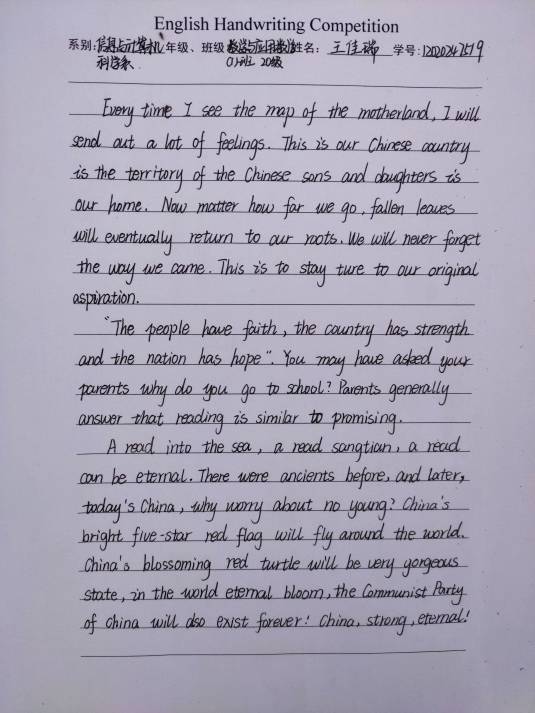 English Handwriting Competition
系别:信息与计算机 年级、班级 数学与应用数学 姓名: 王佳瑞 学号:
科学系 (1)班 20级
Every time I see the map of the motherland, I will
send out a lot of feelings. This is our Chinese country
is the territory of the Chinese sons and daughters is
our home. Now matter how far we go, fallen leaves
will eventually return to our roots. We will never forget
the way we came. This is to stay ture to our original
aspiration.
"The people have faith, the country has strength
and the nation has hope". You may have asked your
parents why do you go to school? Parents generally
answer that reading is similar to promising.
A read into the sea, a read sangtian, a read
can be eternal. There were ancients before, and later,
today's China, why worry about no young? China's
bright five-star red flag will fly around the world.
China's blossoming red turtle will be very gorgeous
state, in the world eternal bloom, the Communist Party
of China will also exist forever! China, strong, eternal!